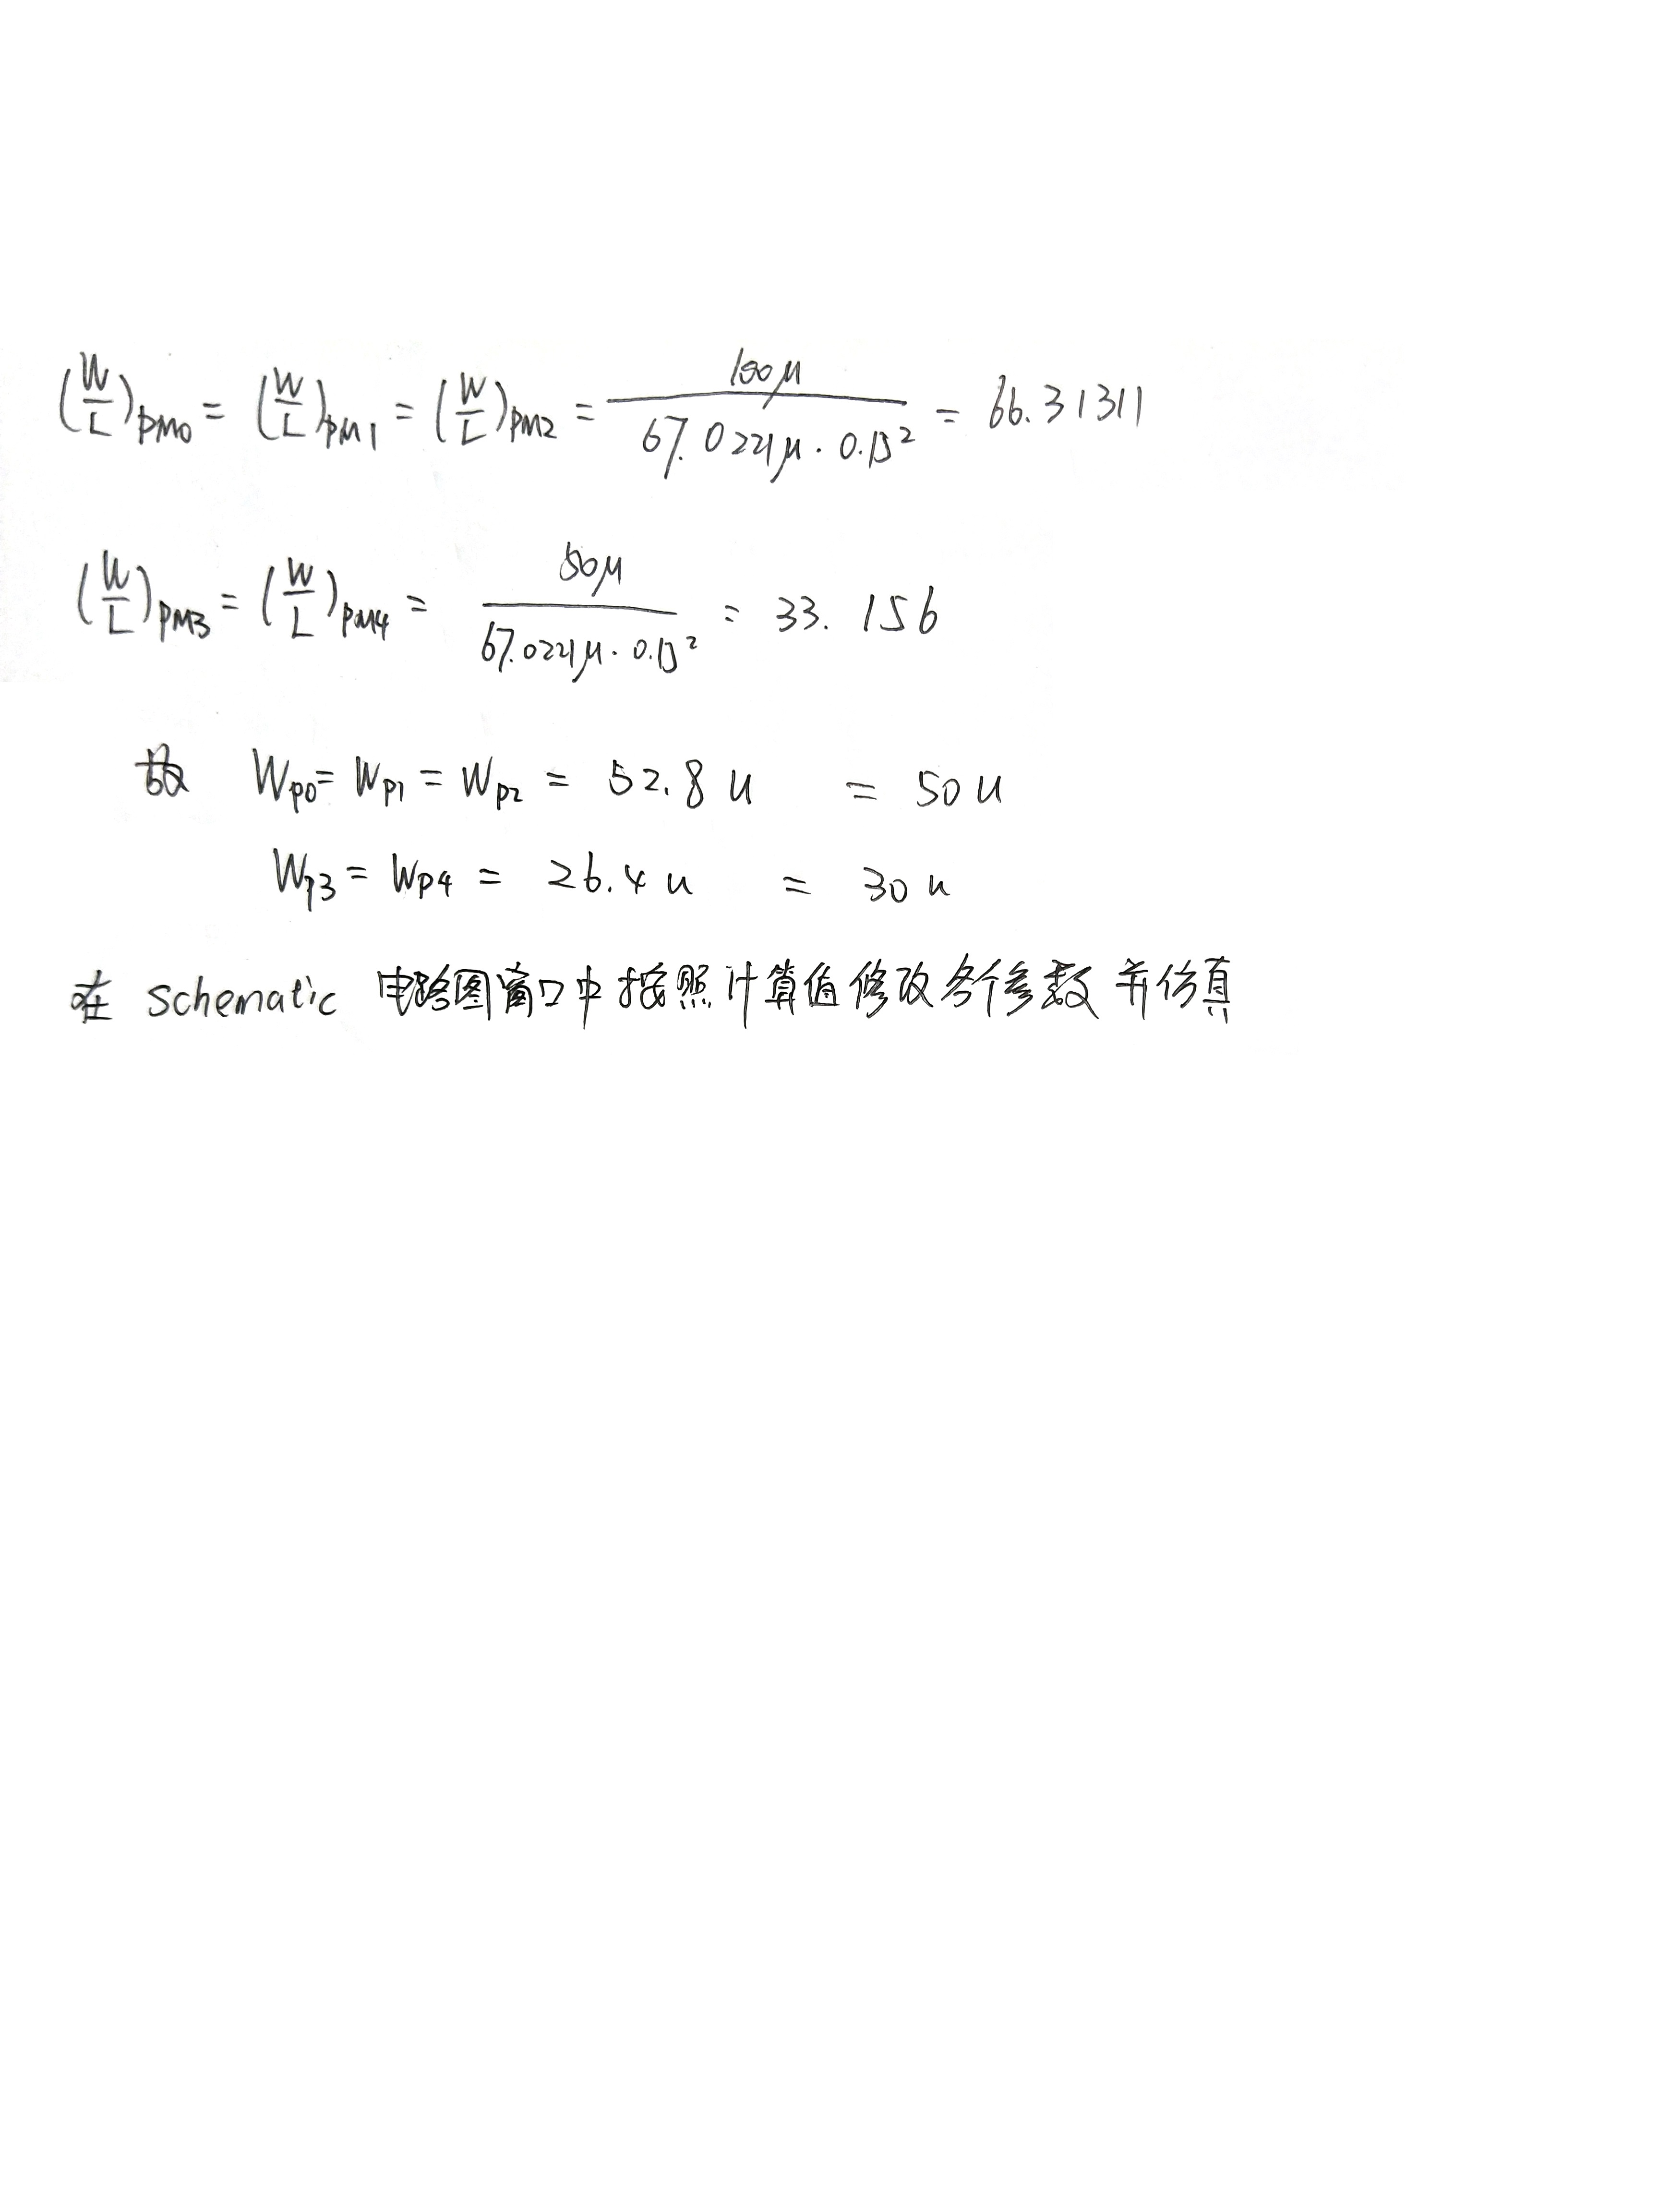 (W/L)PM0 = (W/L)PM1 = (W/L)PM2 = 100μ / (67.0221μ · 0.15²) = 66.31311
(W/L)PM3 = (W/L)PM4 = 50μ / (67.0221μ · 0.15²) = 33.156
故 Wp0 = Wp1 = Wp2 = 52.8u = 50u
Wp3 = Wp4 = 26.4u = 30u
在 schematic 电路图窗口中按照计算值修改各个参数并仿真